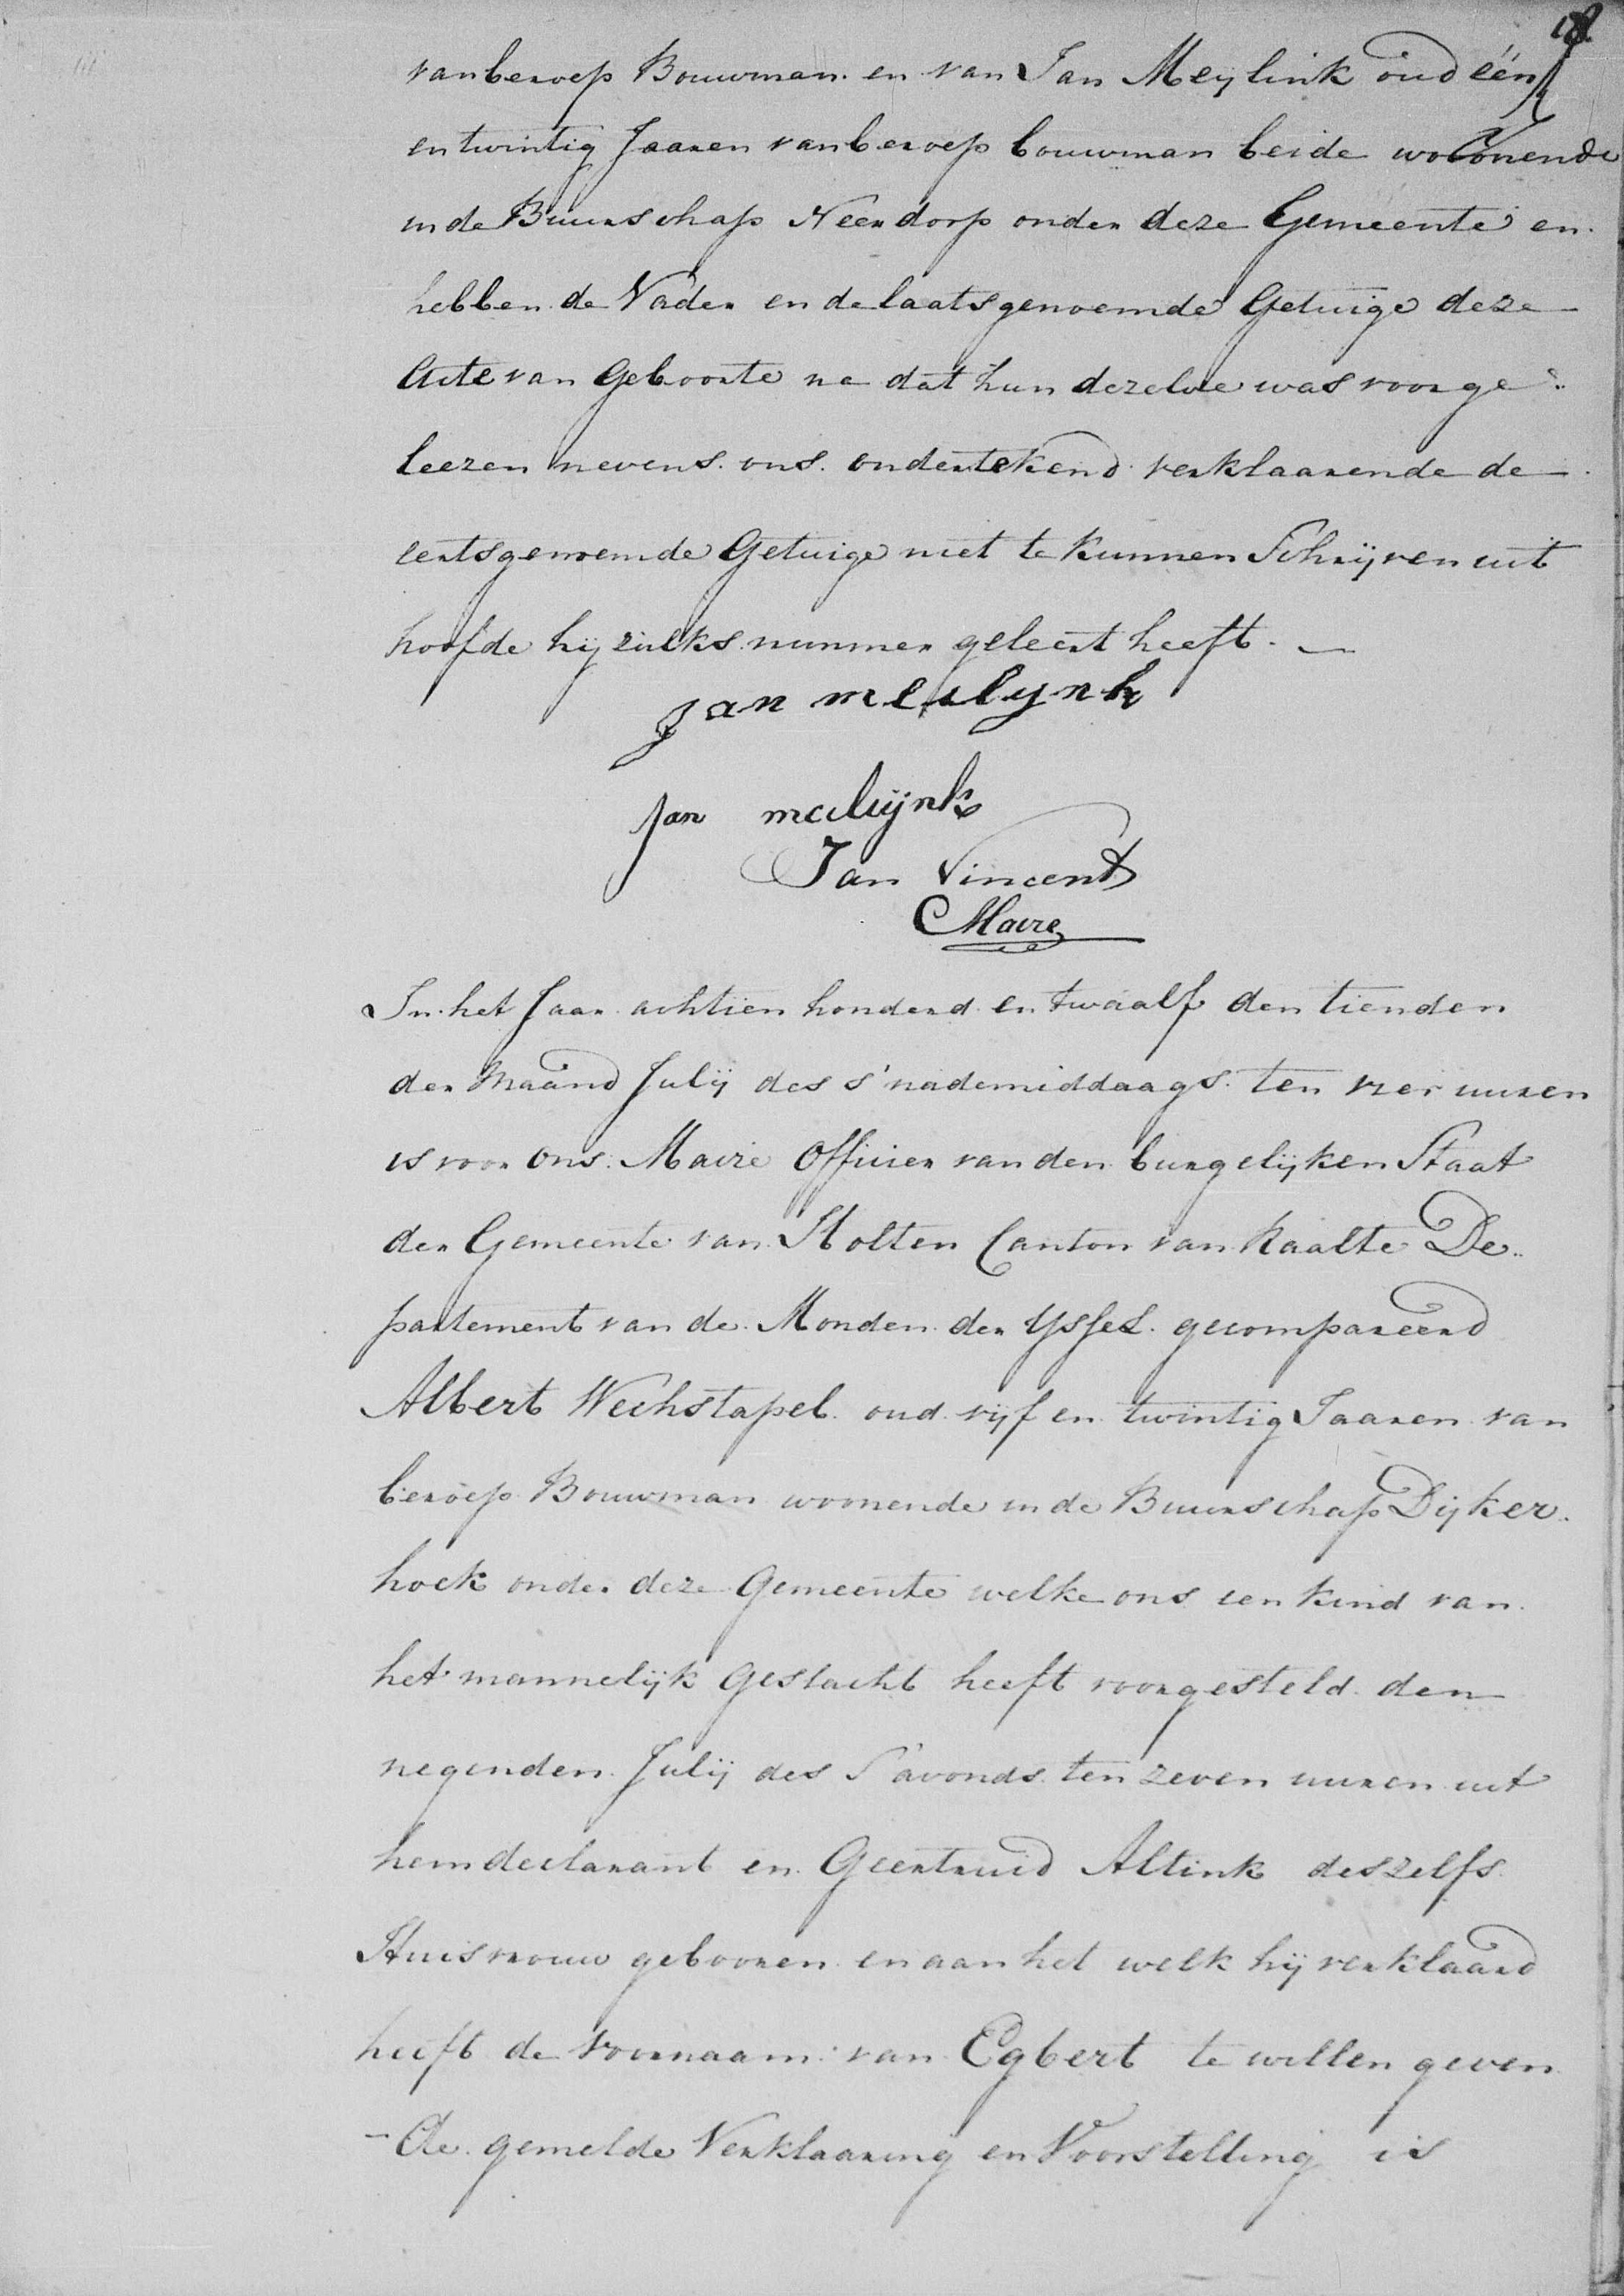 18
van beroep Bouwman en van Jan Meylink oud één
en twintig Jaaren van beroep bouwman beide woonende
in de Buurschap Neerdorp onder deze Gemeente en
hebben de Vader en de laatsgenoemde Getuige deze
Acte van Geboorte na dat hun dezelve was voorge„
leezen nevens ons ondertekend verklaarende de
eerstgenoemde Getuige niet te kunnen Schrijven uit
hoofde hij zulks nimmer geleert heeft. —
Jan meilynk
Jan meilijnk
Jan Vincent
Maire
In het Jaar achtien honderd en twaalf den tienden
der Maand Julij des s'nademiddaags ten vier uuren
is voor ons Maire Officier van den burgelijken Staat
der Gemeente van Holten Canton van Raalte De„
partement van de Monden der Yssel gecompareerd
Albert Wechstapel oud vijf en twintig Jaaren van
beroep Bouwman woonende in de Buurschap Dijker
hoek onder deze Gemeente welke ons een kind van
het mannelijk Geslacht heeft voorgesteld den
negenden Julij des S'avonds ten zeven uuren uit
hem declarant en Geertruid Altink deszelfs
Huisvrouw gebooren en aan het welk hij verklaard
heeft de voornaam van Egbert te willen geven
- De gemelde Verklaaring en Voorstelling is